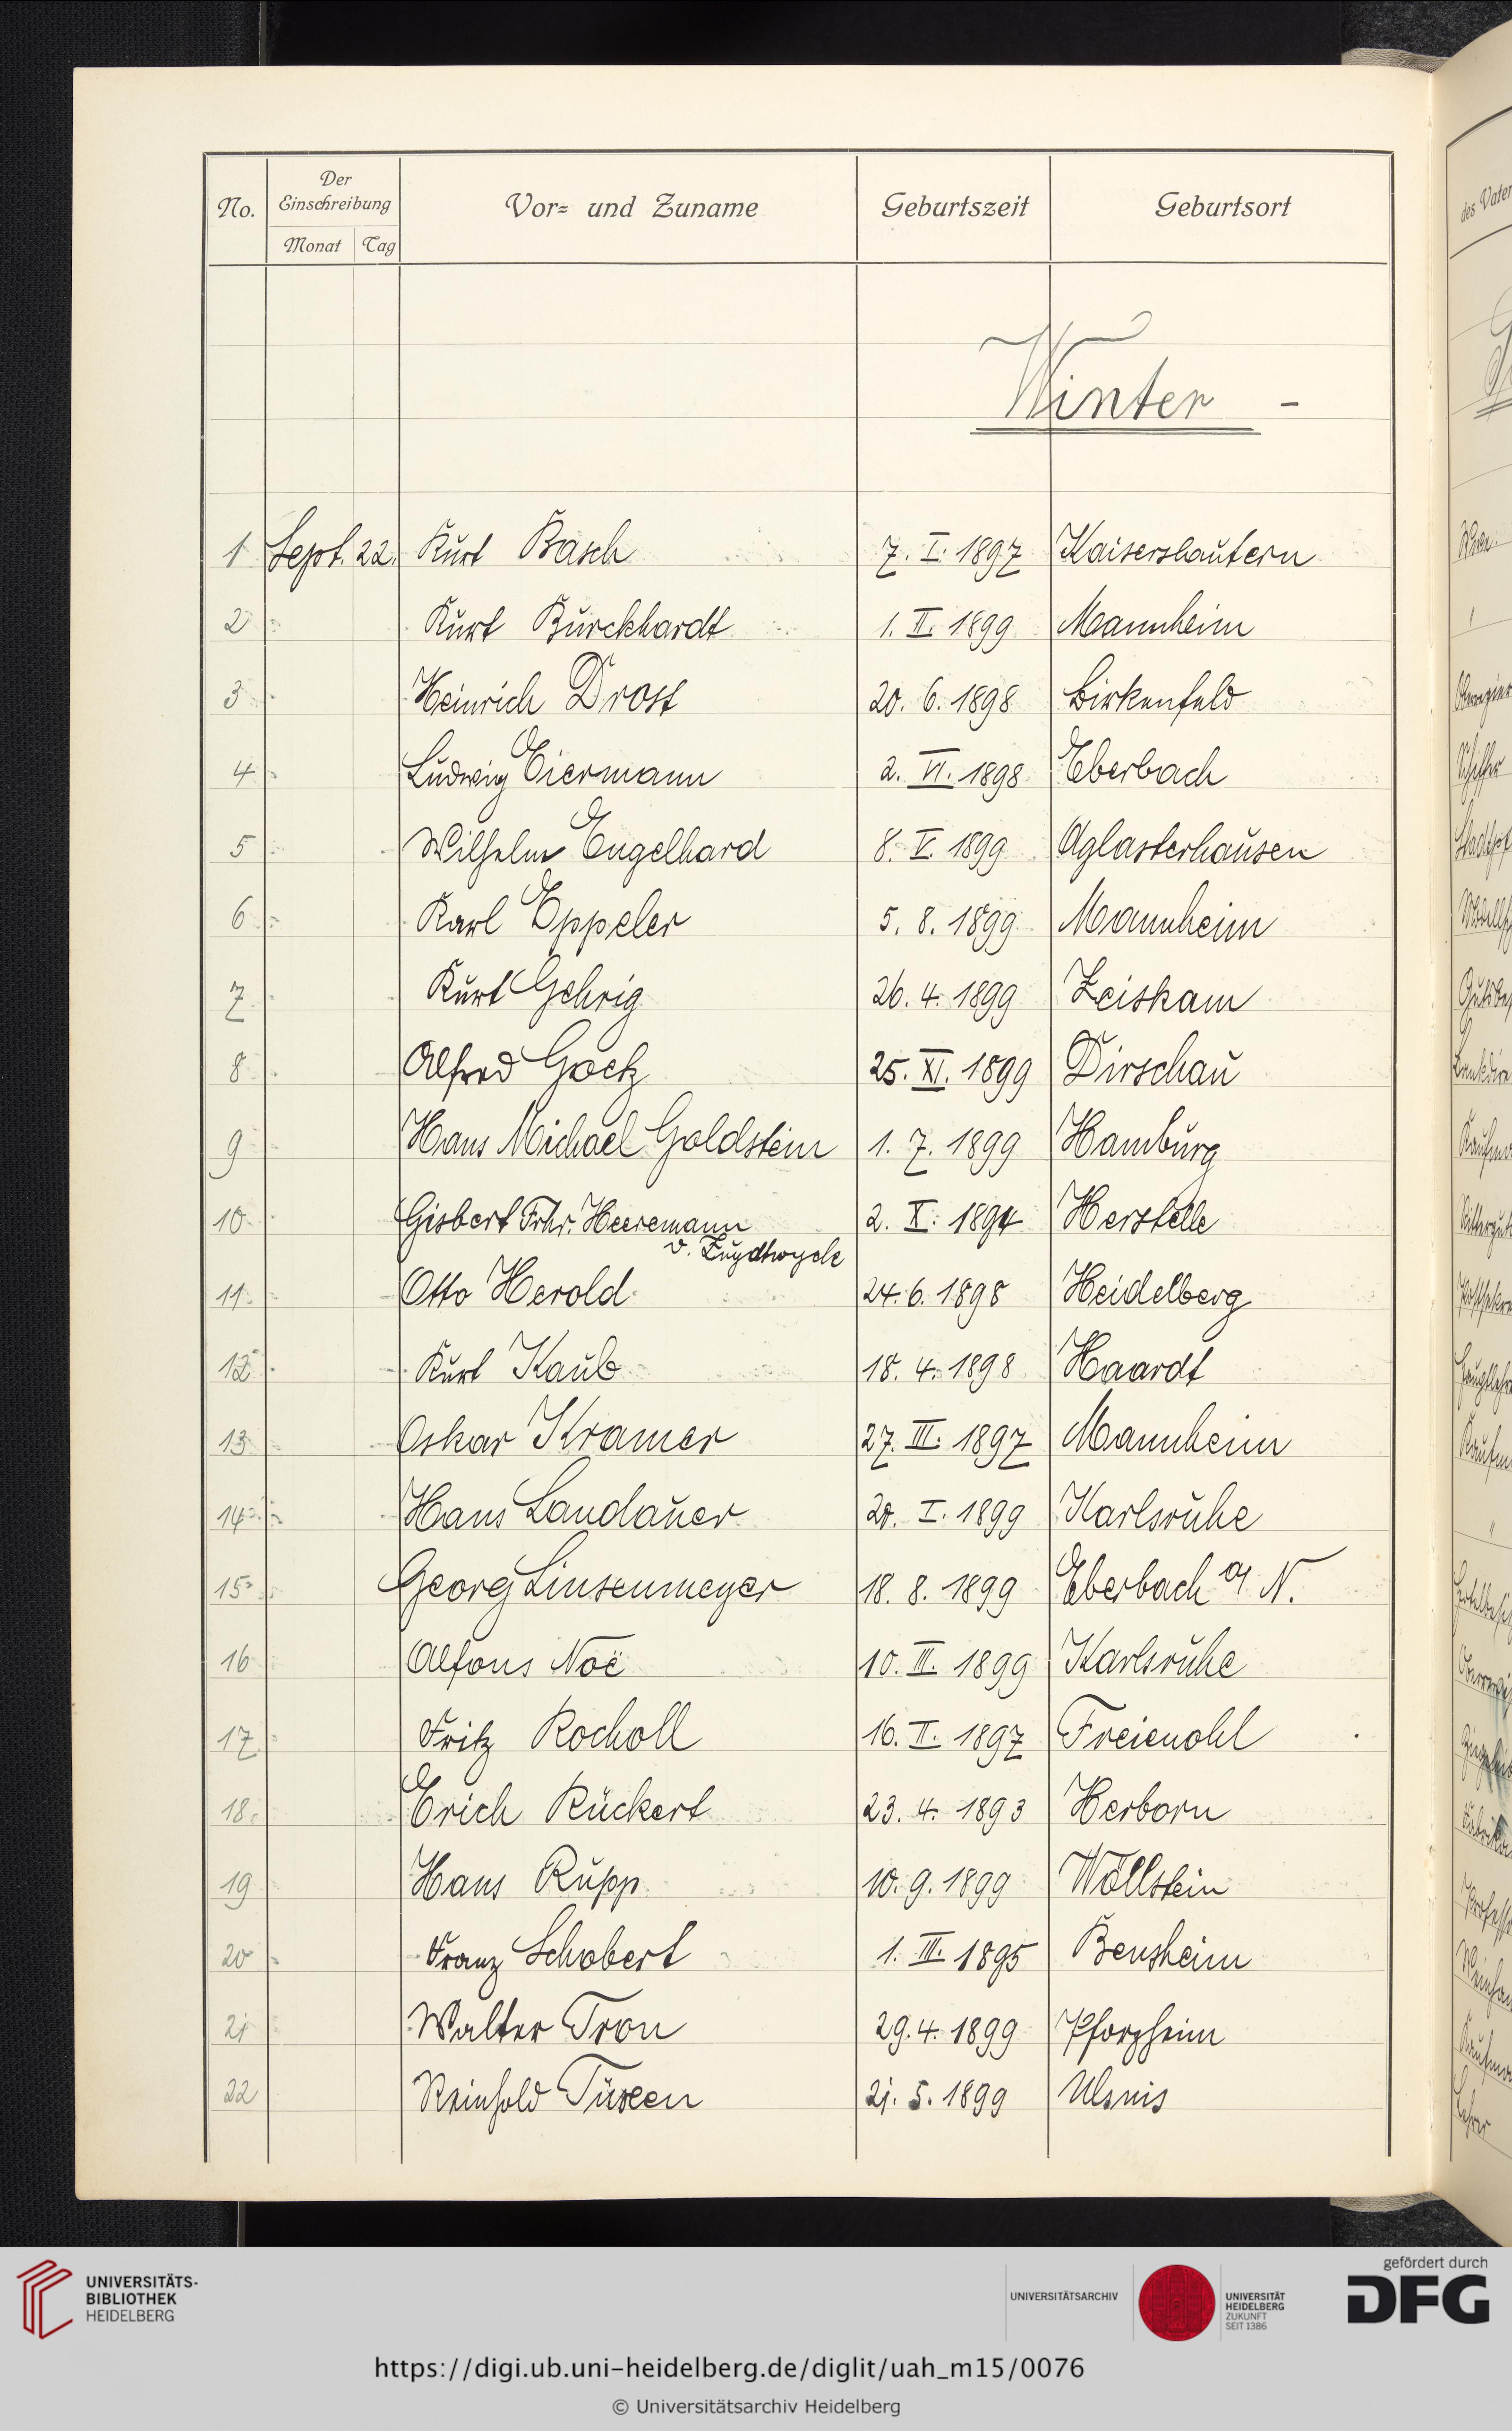 Der
No. Einschreibung Vor= und Zuname Geburtszeit Geburtsort
Monat Tag
Winter -
1 Sept. 22. Kurt Basch 7. I. 1897 Kaiserslautern
2 Kurt Burckhardt 1. II. 1899 Mannheim
3 Heinrich Drost 20. 6. 1898 Birkenfeld
4 Ludwig Eiermann 2. VI. 1898 Eberbach
5 Wilhelm Engelhard 8. V. 1899 Aglasterhausen
6 Karl Eppeler 5. 8. 1899 Mannheim
7 Kurt Gehrig 26. 4. 1899 Zeiskam
8 Alfred Goetz 25. XI. 1899 Dirschau
9 Hans Michael Goldstein 1. 7. 1899 Hamburg
10 Gisbert Frhr. Heeremann 2. X. 1894 Herstelle
v. Zuydtwyck
11 Otto Herold 24. 6. 1898 Heidelberg
12 Kurt Kaub 18. 4. 1898 Haardt
13 Oskar Kramer 27. III. 1897 Mannheim
14 Hans Landauer 20. I. 1899 Karlsruhe
15 Georg Linsenmeyer 18. 8. 1899 Eberbach a/ N.
16 Alfons Noë 10. III. 1899 Karlsruhe
17 Fritz Rocholl 16. II. 1897 Freienohl
18 Erich Rückert 23. 4. 1893 Herborn
19 Hans Rupp 10. 9. 1899 Wöllstein
20 Franz Schobert 1. III. 1895 Bensheim
21 Walter Tron 29. 4. 1899 Pforzheim
22 Reinhold Tüxen 21. 5. 1899 Ulsnis
des Vater
UNIVERSITÄTS-
BIBLIOTHEK
HEIDELBERG
UNIVERSITÄTSARCHIV
UNIVERSITÄT
HEIDELBERG
ZUKUNFT
SEIT 1386
gefördert durch
DFG
https://digi.ub.uni-heidelberg.de/diglit/uah_m15/0076
© Universitätsarchiv Heidelberg